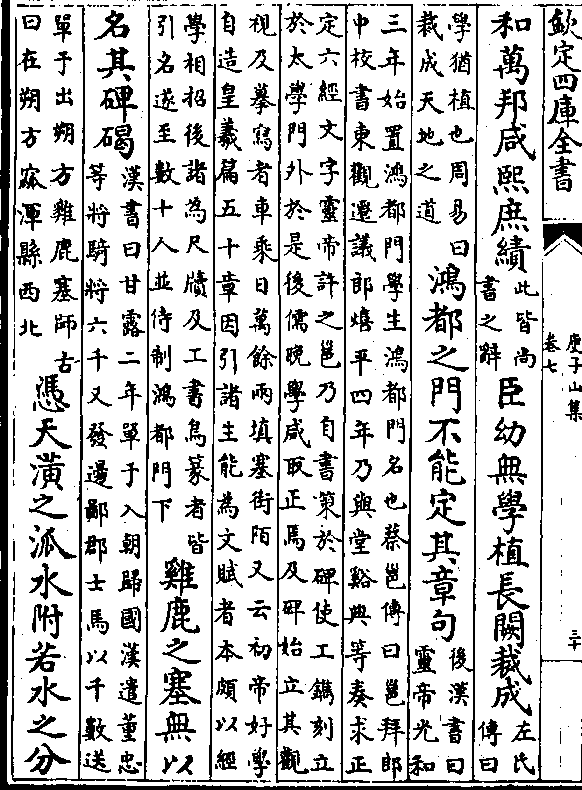 欽定四庫全書
庾子山集
卷七
三十
和萬邦咸熙庶績
此皆尚
書之辭
臣幼無學植長闕裁成
左氏
傳曰
學猶植也周易曰
裁成天地之道
鴻都之門不能定其章句
後漢書曰
靈帝光和
三年始置鴻都門學生鴻都門名也蔡邕傳曰邕拜郎
中校書東觀遷議郎熺平四年乃與堂谿典等奏求正
定六經文字靈帝許之邕乃自書策於碑使工鐫刻立
於太學門外於是後儒晚學咸取正焉及碑始立其觀
視及摹寫者車乘日萬餘兩填塞街陌又云初帝好學
自造皇羲篇五十章因引諸生能為文賦者本頗以經
學相招後諸為尺牘及工書鳥篆者皆
引名遂至數十人並待制鴻都門下
雞鹿之塞無以
名其碑碣
漢書曰甘露二年單于入朝歸國漢遣董忠
等將騎將六千又發邊鄙郡士馬以千數送
單于出朔方雞鹿塞師古
曰在朔方窳渾縣西北
憑天潢之派水附若水之分